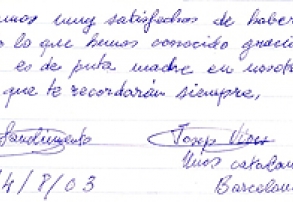 mos muy satisfechos de haber
o lo que hemos conocido gracia
es de puta madre en nosot
que te recordarán siempre,
Sandimento Josep
Unos catalan
4/8/03 Barcelon